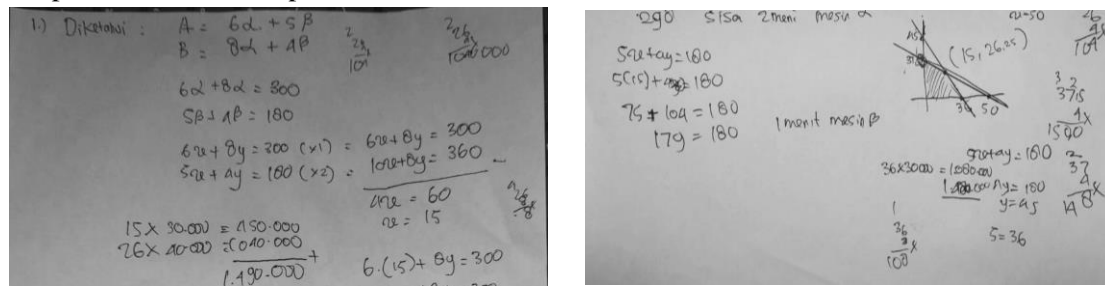 1.) Diketahui : A = 6α + 5β
B = 8α + 4β
6α + 8α = 300
5β + 4β = 180
6x + 8y = 300 (x1) = 6x + 8y = 300
5x + 4y = 180 (x2) = 10x + 8y = 360 -
4x = 60
x = 15
15 × 30.000 = 450.000
26 × 40.000 = 1.040.000 +
1.490.000
6.(15) + 8y = 300
290 sisa 2 menit mesin α
5x + 4y = 180
5(15) + = 180
75 + 104 = 180
179 = 180
1 menit mesin β
(15, 26.25)
45
36 50
x=50
26
4 x
104
37,5
4 x
5x + 4y = 180
36×30000 = 1.080.000
4y = 180
y = 45
37
4 x
148
36
3 x
108
5=36